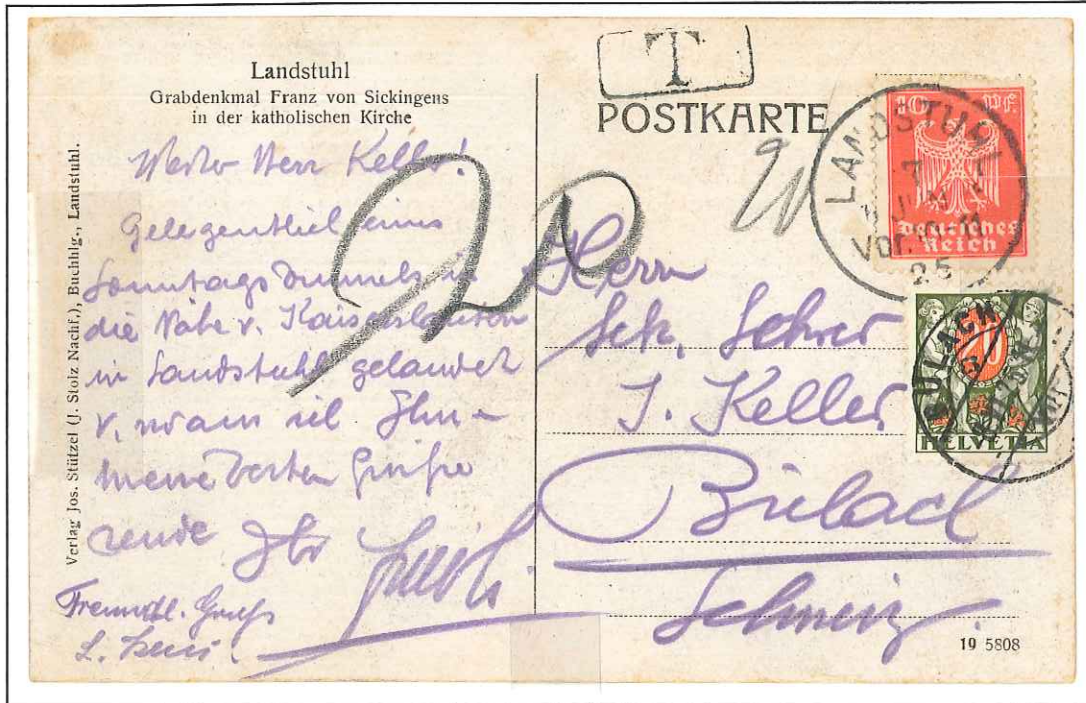 Landstuhl
Grabdenkmal Franz von Sickingens
in der katholischen Kirche
Verlag Jos. Stützel (J. Stolz Nachf.), Buchhlg., Landstuhl.
Herr Keller!
Gelegentlich eines
Sonntagsbummels in
die Nähe v. Kaiserslautern
in Landstuhl gelandet
v. wo aus ich Ihnen
meine besten Grüße
sende Ihr
Freundl. Gruß
L.
T
POSTKARTE
20
20
10 Pf.
Deutsches
Reich
LANDSTUHL
7
JUN
Vor. 10-11
25
20
HELVETIA
BÜLACH
Herrn
Sek. Lehrer
J. Keller
Bülach
Schweiz.
19 5808